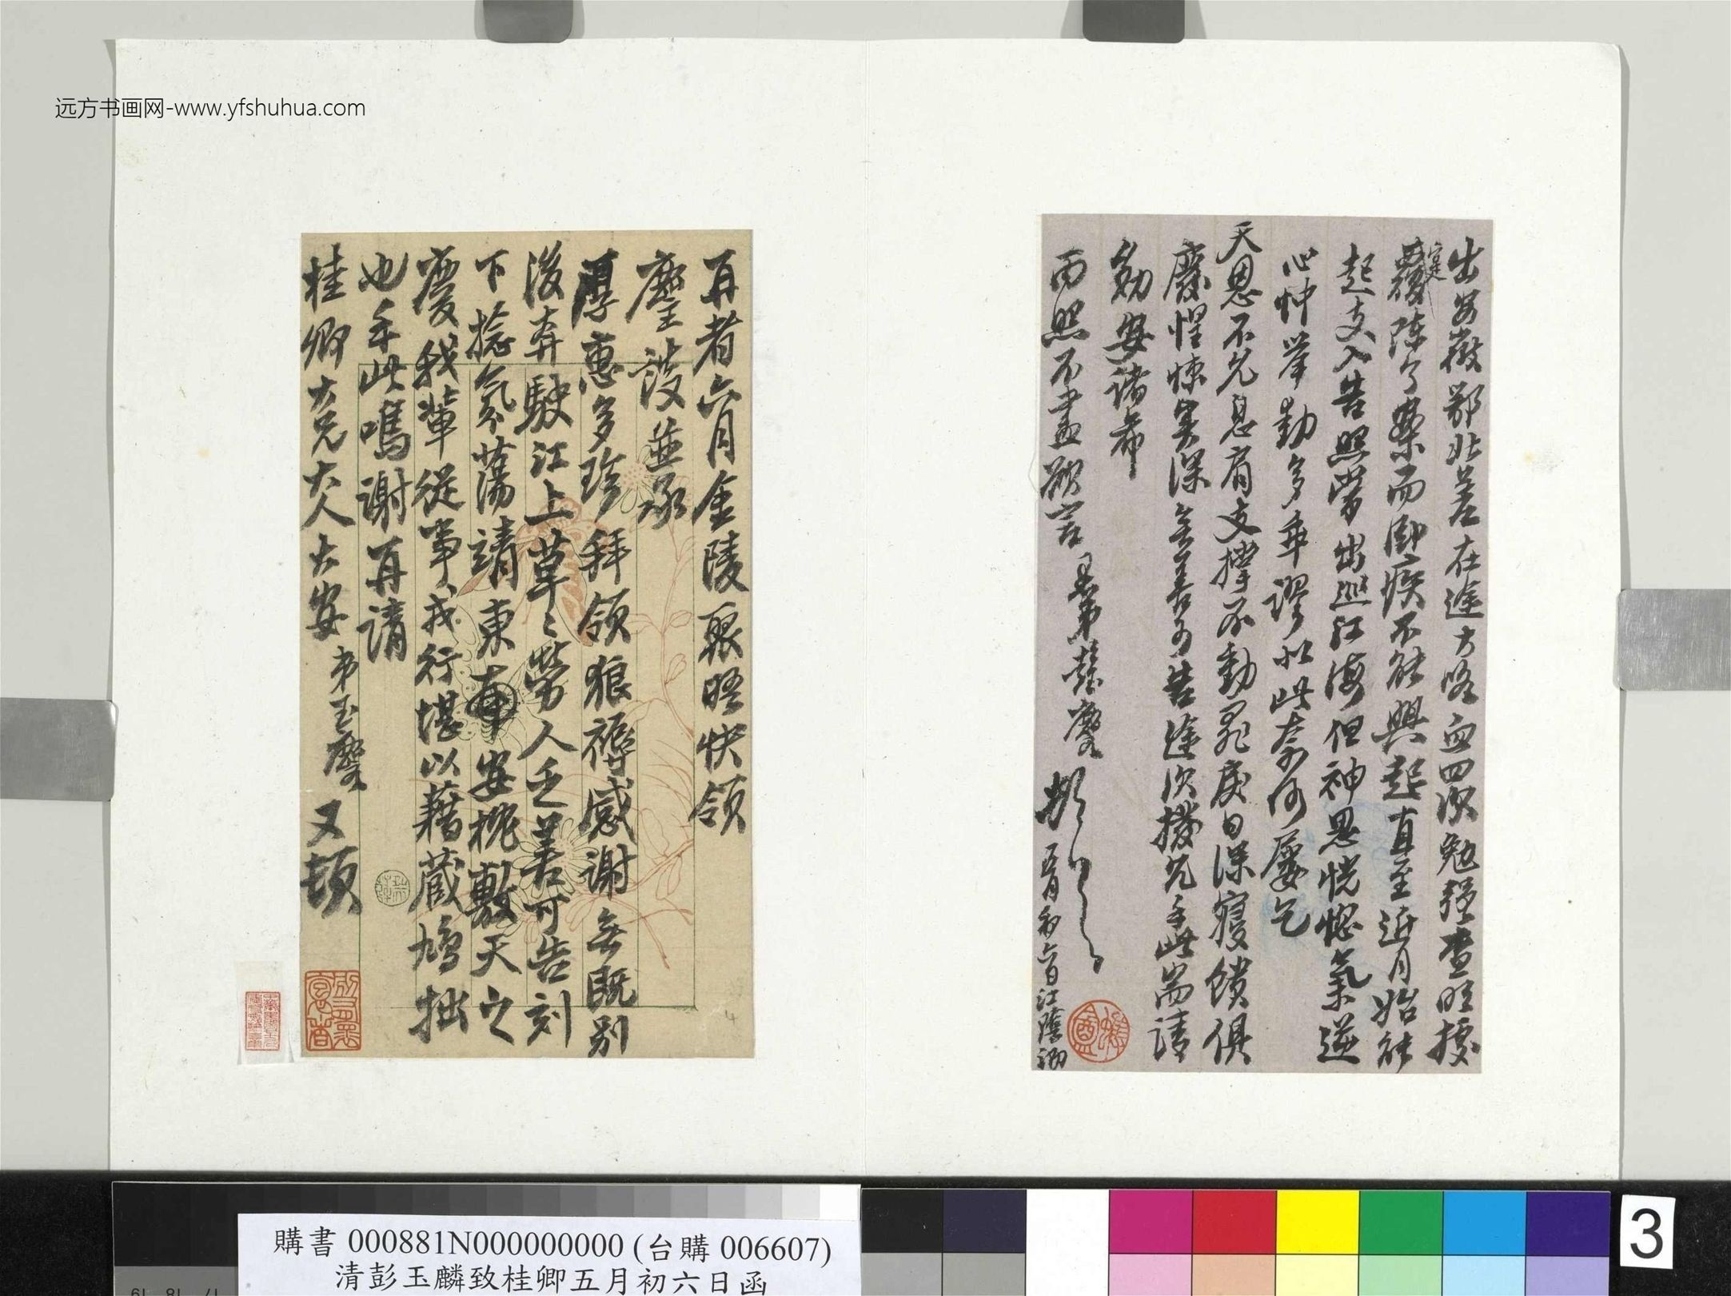 远方书画网-www.yfshuhua.com
出安徽鄂北差在途大咯血四次勉強查明據
實覆陳了案而卧疾不能興起直至近月始能
起支入告照常出巡江海但神思恍惚氣逆
心忡舉動多乖謬如此奈何屢乞
天恩不允息肩支撐不動罪戾日深寢饋俱
廢惶悚實深無善可告途次撥冗手此耑請
勛安諸希
雨照不盡欲言 弟彭麐 頓 五月初六日江陰
再者六月金陵聚晤快領
麈談並承
厚惠多珍拜領狼褥感謝無既別
後奔駛江上草草勞人乏善可告刻
下捻氛蕩靖東南安枕敷天之
慶我輩從事戎行堪以藉藏鳩拙
也手此鳴謝再請
桂卿大兄大人大安 弟玉麐又頓
購書 000881N000000000 (台購 006607)
清彭玉麟致桂卿五月初六日函
3